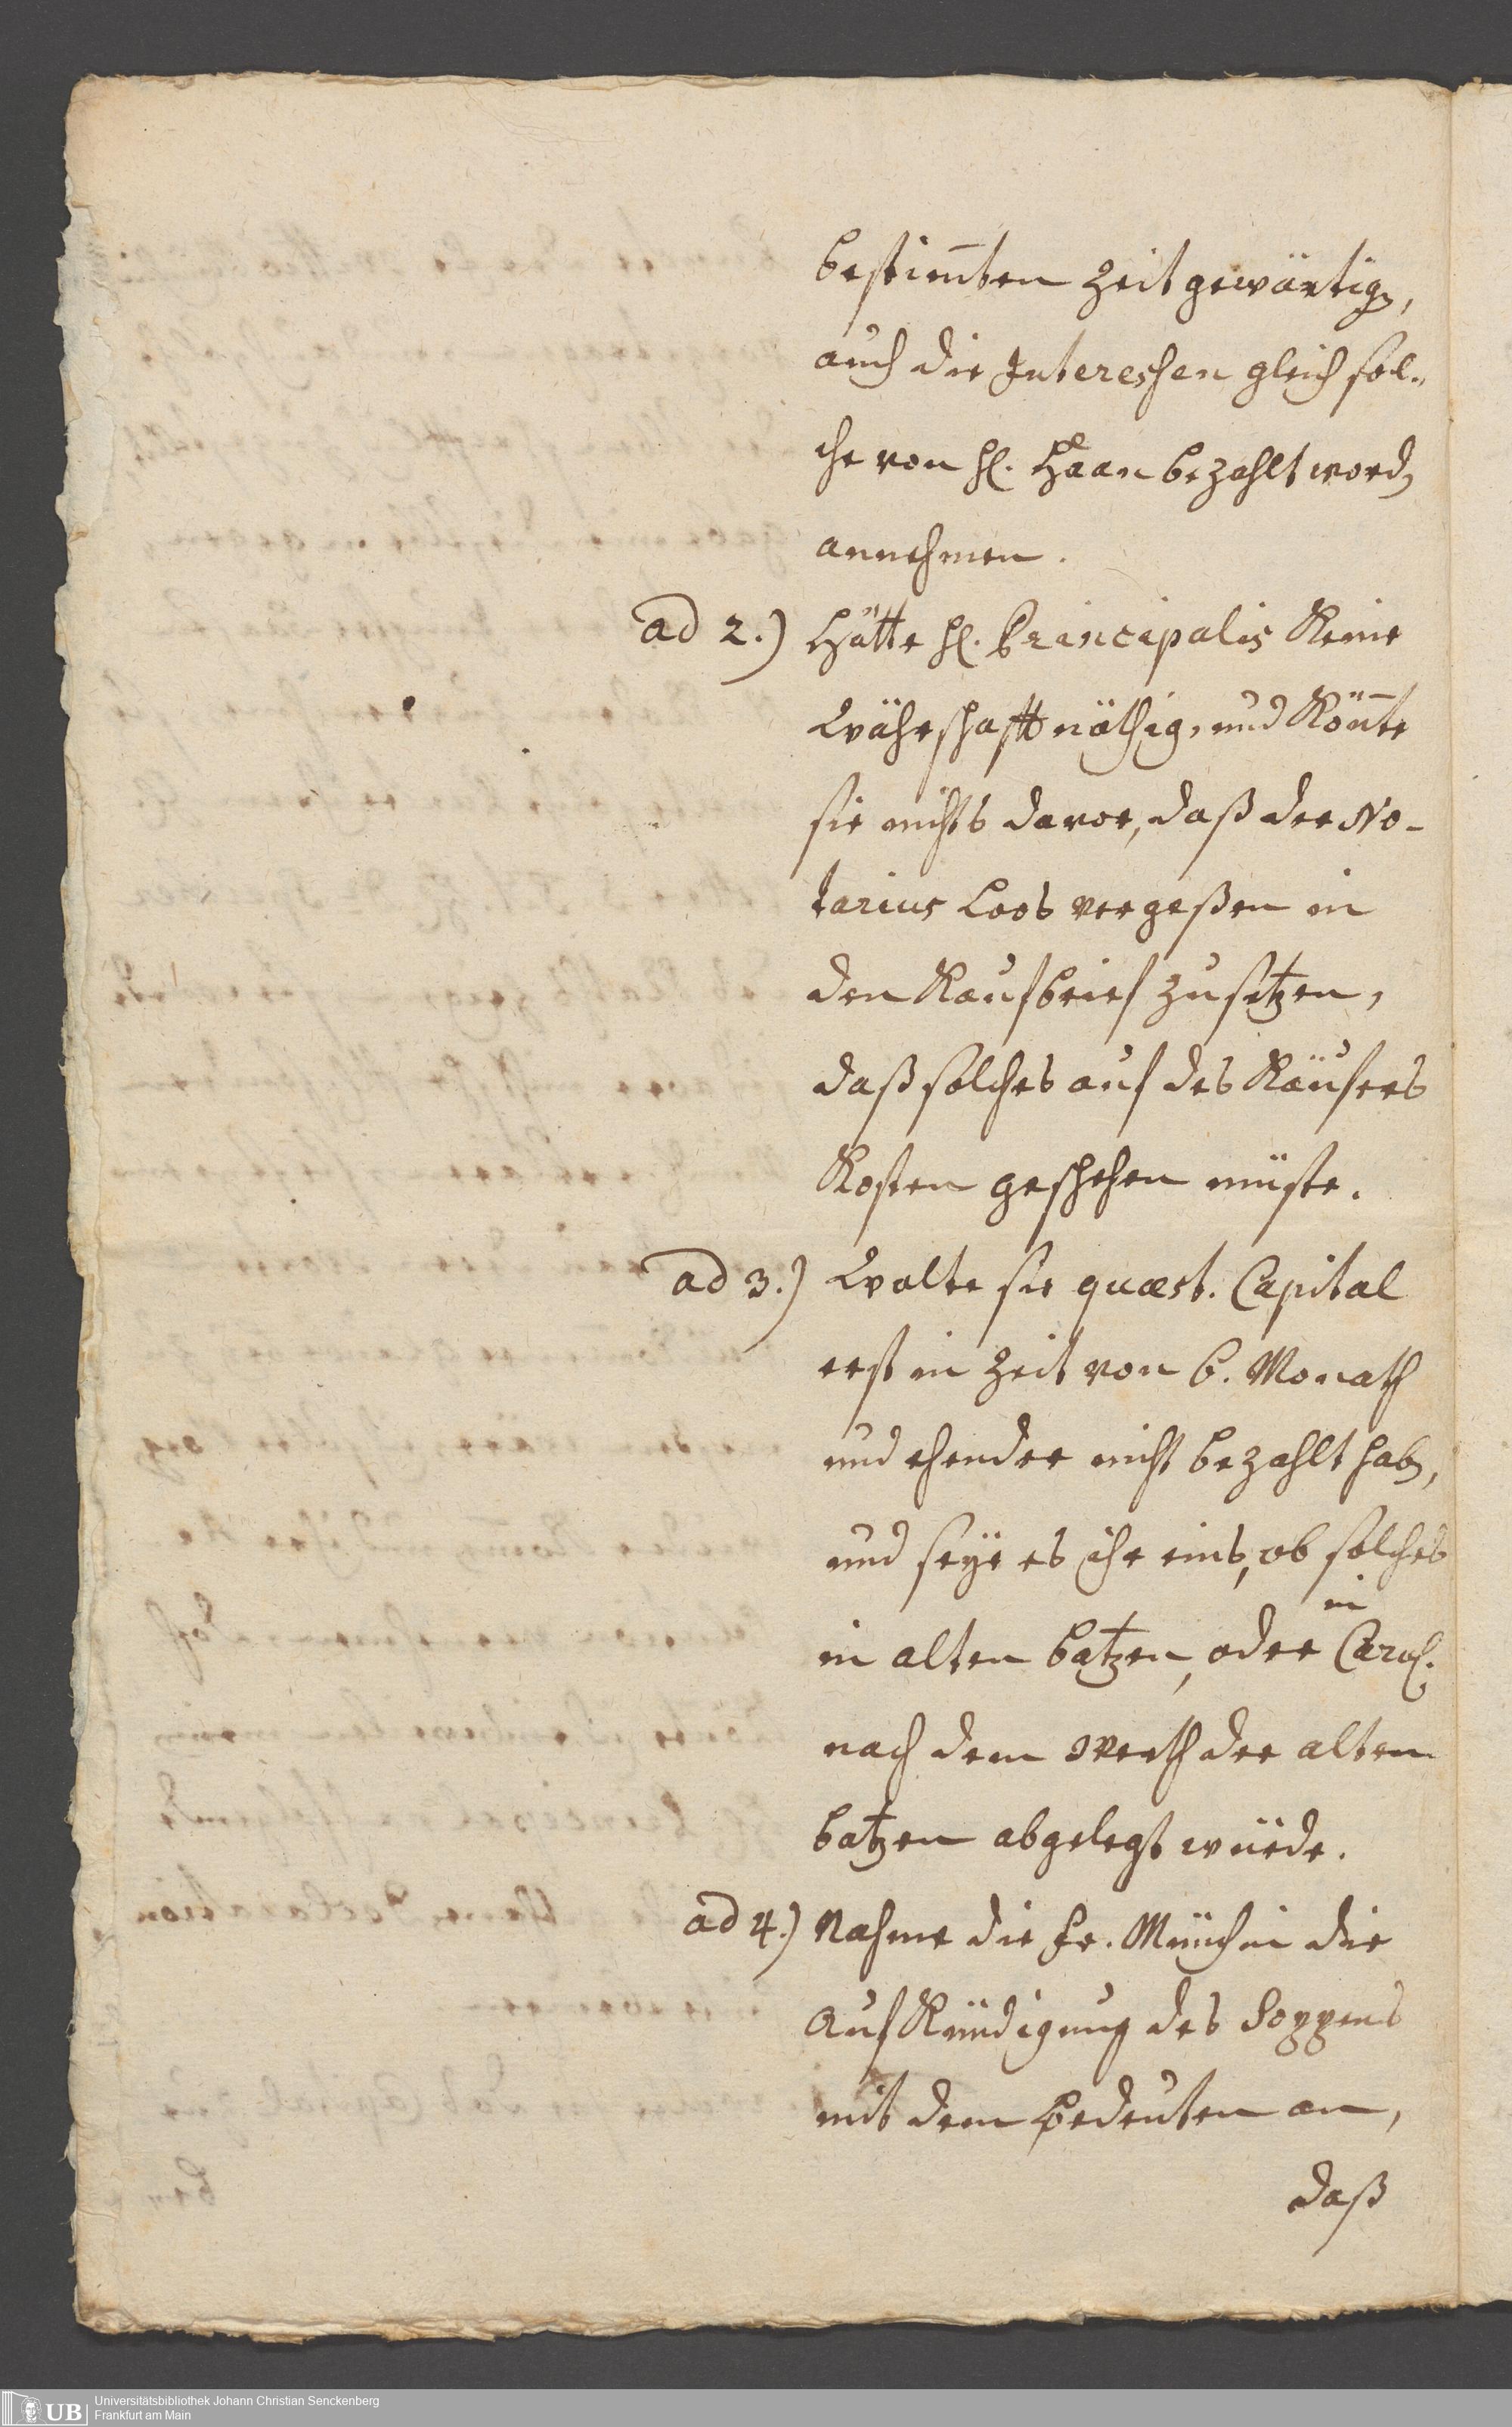 bestim̄ten Zeit gewärtig,
auch die Interessen gleich sol-
che von H. Haan bezahlt word
annehmen.
ad 2.) Hätte H. Principalis Keine
Währschafft nöthig, und Kön̄te
sie nichts davor, daß der No-
tarius Loos vergeßen in
den Kaufbrief zu setzen,
daß solches auf des Käufers
Kosten geschehen müste.
ad 3.) Wolte sie quæst. Capital
erst in Zeit von 6. Monath
und ehender nicht bezahlt hab,
und seÿe es ihr eins, ob solches
in
in alten batzen, oder Carol.
nach dem Werth der alten
batzen abgelegt würde.
ad 4.) Nahme die Fr. Münchin die
Auf Kündigung des
mit dem bedeuten an,
daß
UB
Universitätsbibliothek Johann Christian Senckenberg
Frankfurt am Main